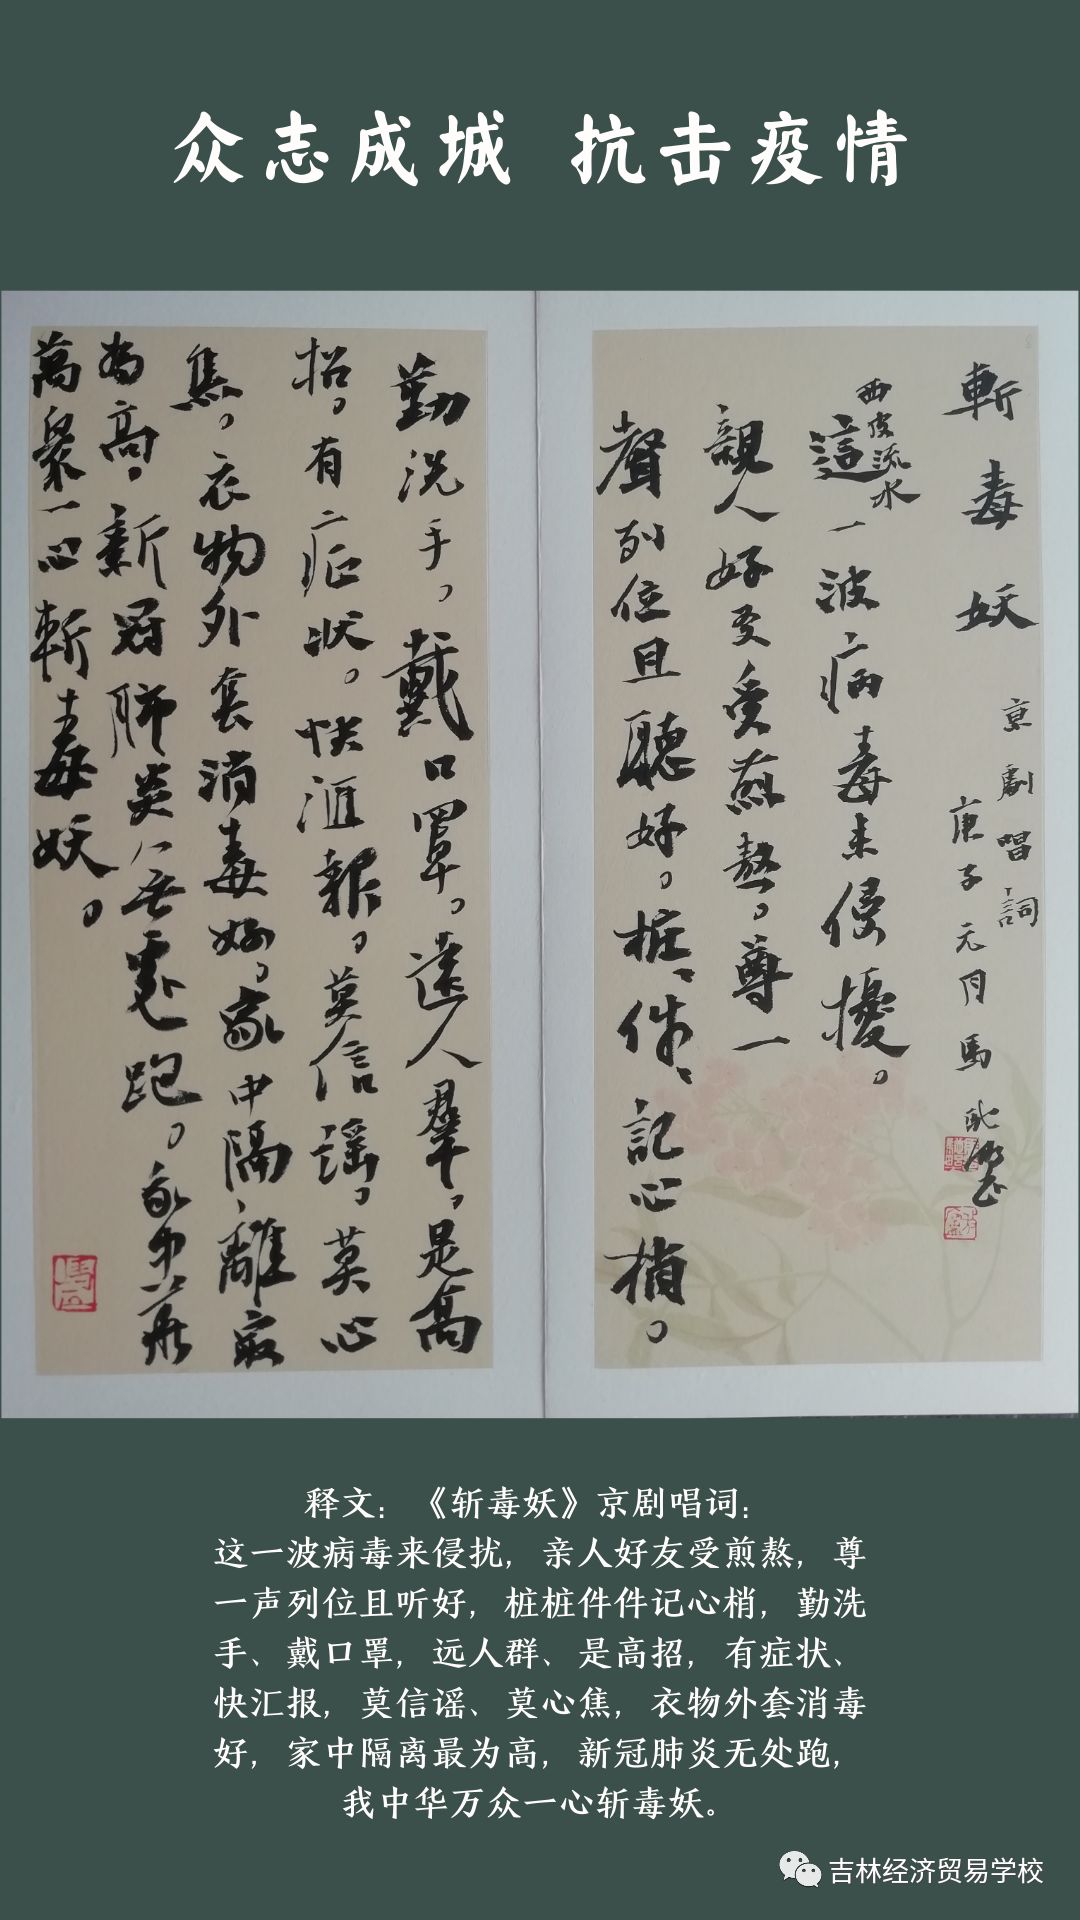 众志成城 抗击疫情
斬毒妖
京劇唱詞
庚子元月馬
西皮流水
這一波病毒来侵擾。
親人好友受煎熬。尊一
聲列位且聽好。桩、件、記心梢。
勤洗手。戴口罩。遠人群。是高
招。有症状。快滙報。莫信謡。莫心
焦。衣物外套消毒好。家中隔離最
为高。新冠肺炎无處跑。我中華
萬衆一心斬毒妖。
释文：《斩毒妖》京剧唱词：
这一波病毒来侵扰，亲人好友受煎熬，尊
一声列位且听好，桩桩件件记心梢，勤洗
手、戴口罩，远人群、是高招，有症状、
快汇报，莫信谣、莫心焦，衣物外套消毒
好，家中隔离最为高，新冠肺炎无处跑，
我中华万众一心斩毒妖。
吉林经济贸易学校